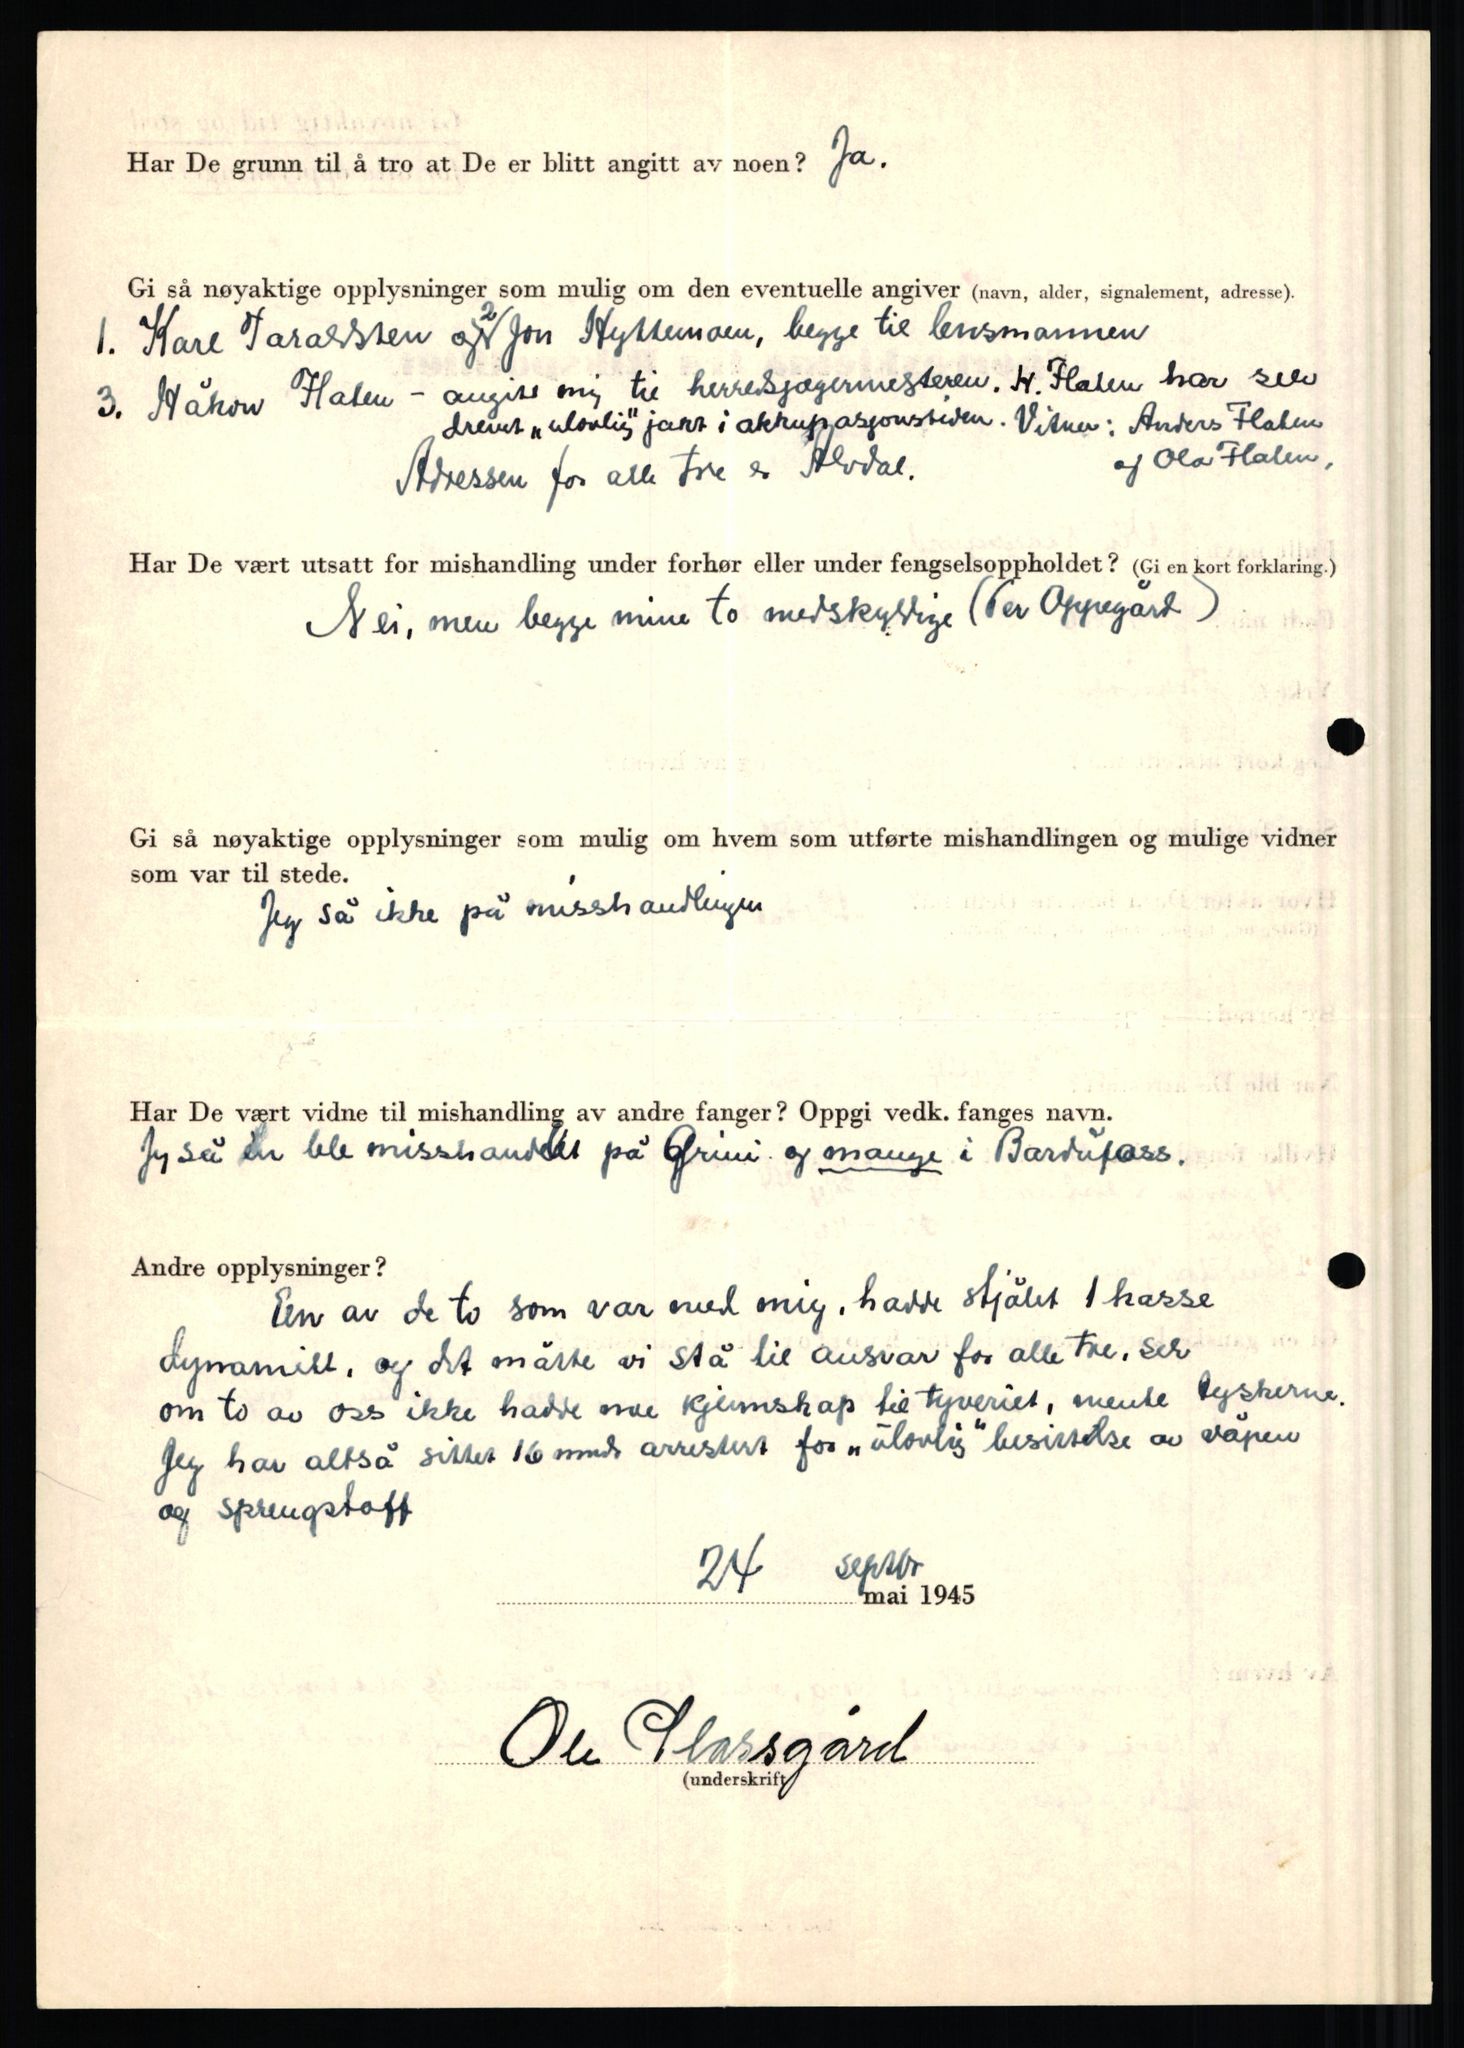 Har De grunn til å tro at De er blitt angitt av noen? Ja.
Gi så nøyaktige opplysninger som mulig om den eventuelle angiver (navn, alder, signalement, adresse).
1. Kare Taraldsten og 2 Jon Hyttemoen, begge til lensmannen
3. Håkon Flaten - angitt mig til herredsjægermesteren. H. Flaten har selv
drevet „ulovlig" jakt i okkupasjonstiden. Vitner: Anders Flaten
og Ola Flaten.
Adressen for alle tre er Alvdal.
Har De vært utsatt for mishandling under forhør eller under fengselsoppholdet? (Gi en kort forklaring.)
Nei, men begge mine to medskyldige (Per Oppegård)
Gi så nøyaktige opplysninger som mulig om hvem som utførte mishandlingen og mulige vidner
som var til stede.
Jeg så ikke på misshandlingen
Har De vært vidne til mishandling av andre fanger? Oppgi vedk. fanges navn.
Jeg så en ble misshandlet på Grini og mange i Bardufoss.
Andre opplysninger?
En av de to som var med mig, hadde stjålet 1 kasse
dynamitt, og det måtte vi stå til ansvar for alle tre, selv
om to av oss ikke hadde noe kjennskap til tyveriet, mente tyskerne.
Jeg har altså sittet 16 mndr arrestert for „ulovlig" besittelse av våpen
og sprengstoff
24 septbr
mai 1945
Ole Plassgård
(underskrift)